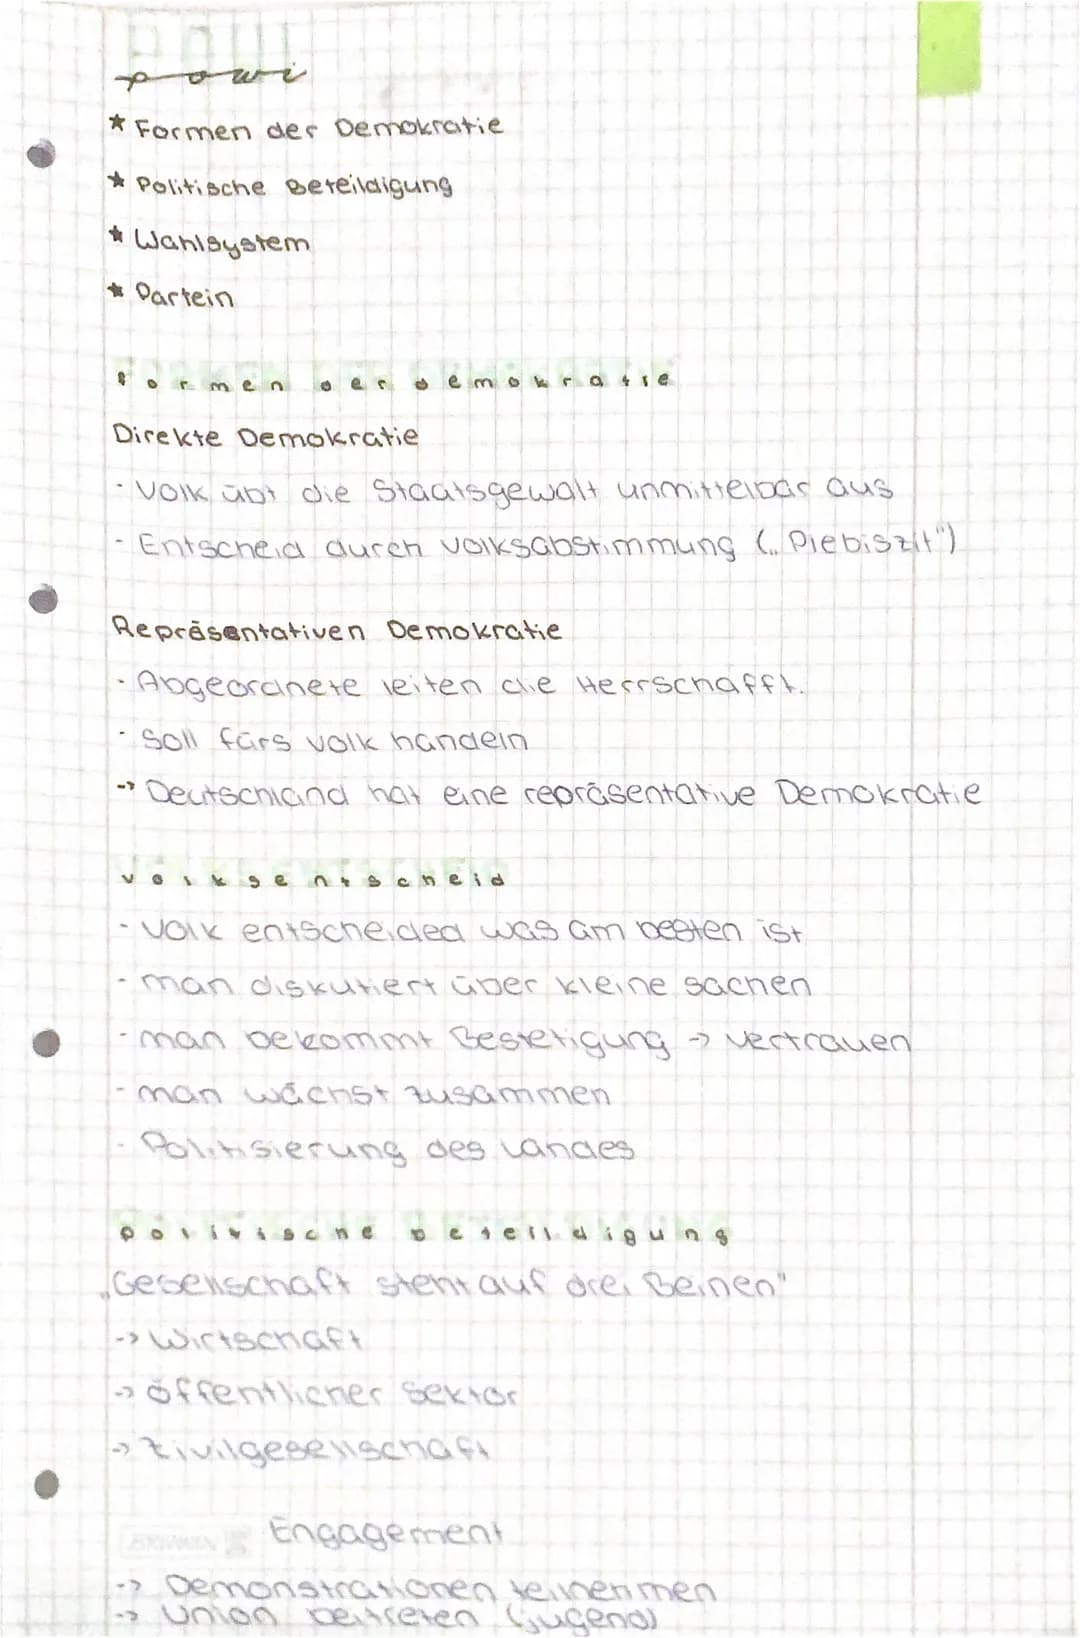 powi
* Formen der Demokratie
* Politische Beteildigung
* Wahlsystem
* Partein
Formen der Demokratie
Direkte Demokratie
- Volk übt die Staatsgewalt unmittelbar aus
- Entscheid durch Volksabstimmung („Plebiszit")
Repräsentativen Demokratie
- Abgeordnete leiten die Herrschafft.
- Soll fürs Volk handeln
-> Deutschland hat eine repräsentative Demokratie
Volksentscheid
- Volk entscheided was am besten ist
- man diskutiert über kleine sachen
- man bekommt Bestetigung -> Vertrauen
- man wächst zusammen
- Politisierung des Landes
Politische Beteildigung
„Gesellschaft steht auf drei Beinen"
-> Wirtschaft
-> öffentlicher Sektor
-> Zivilgesellschaft
Engagement
-> Demonstrationen teilnehmen
-> Union beitreten (jugend)